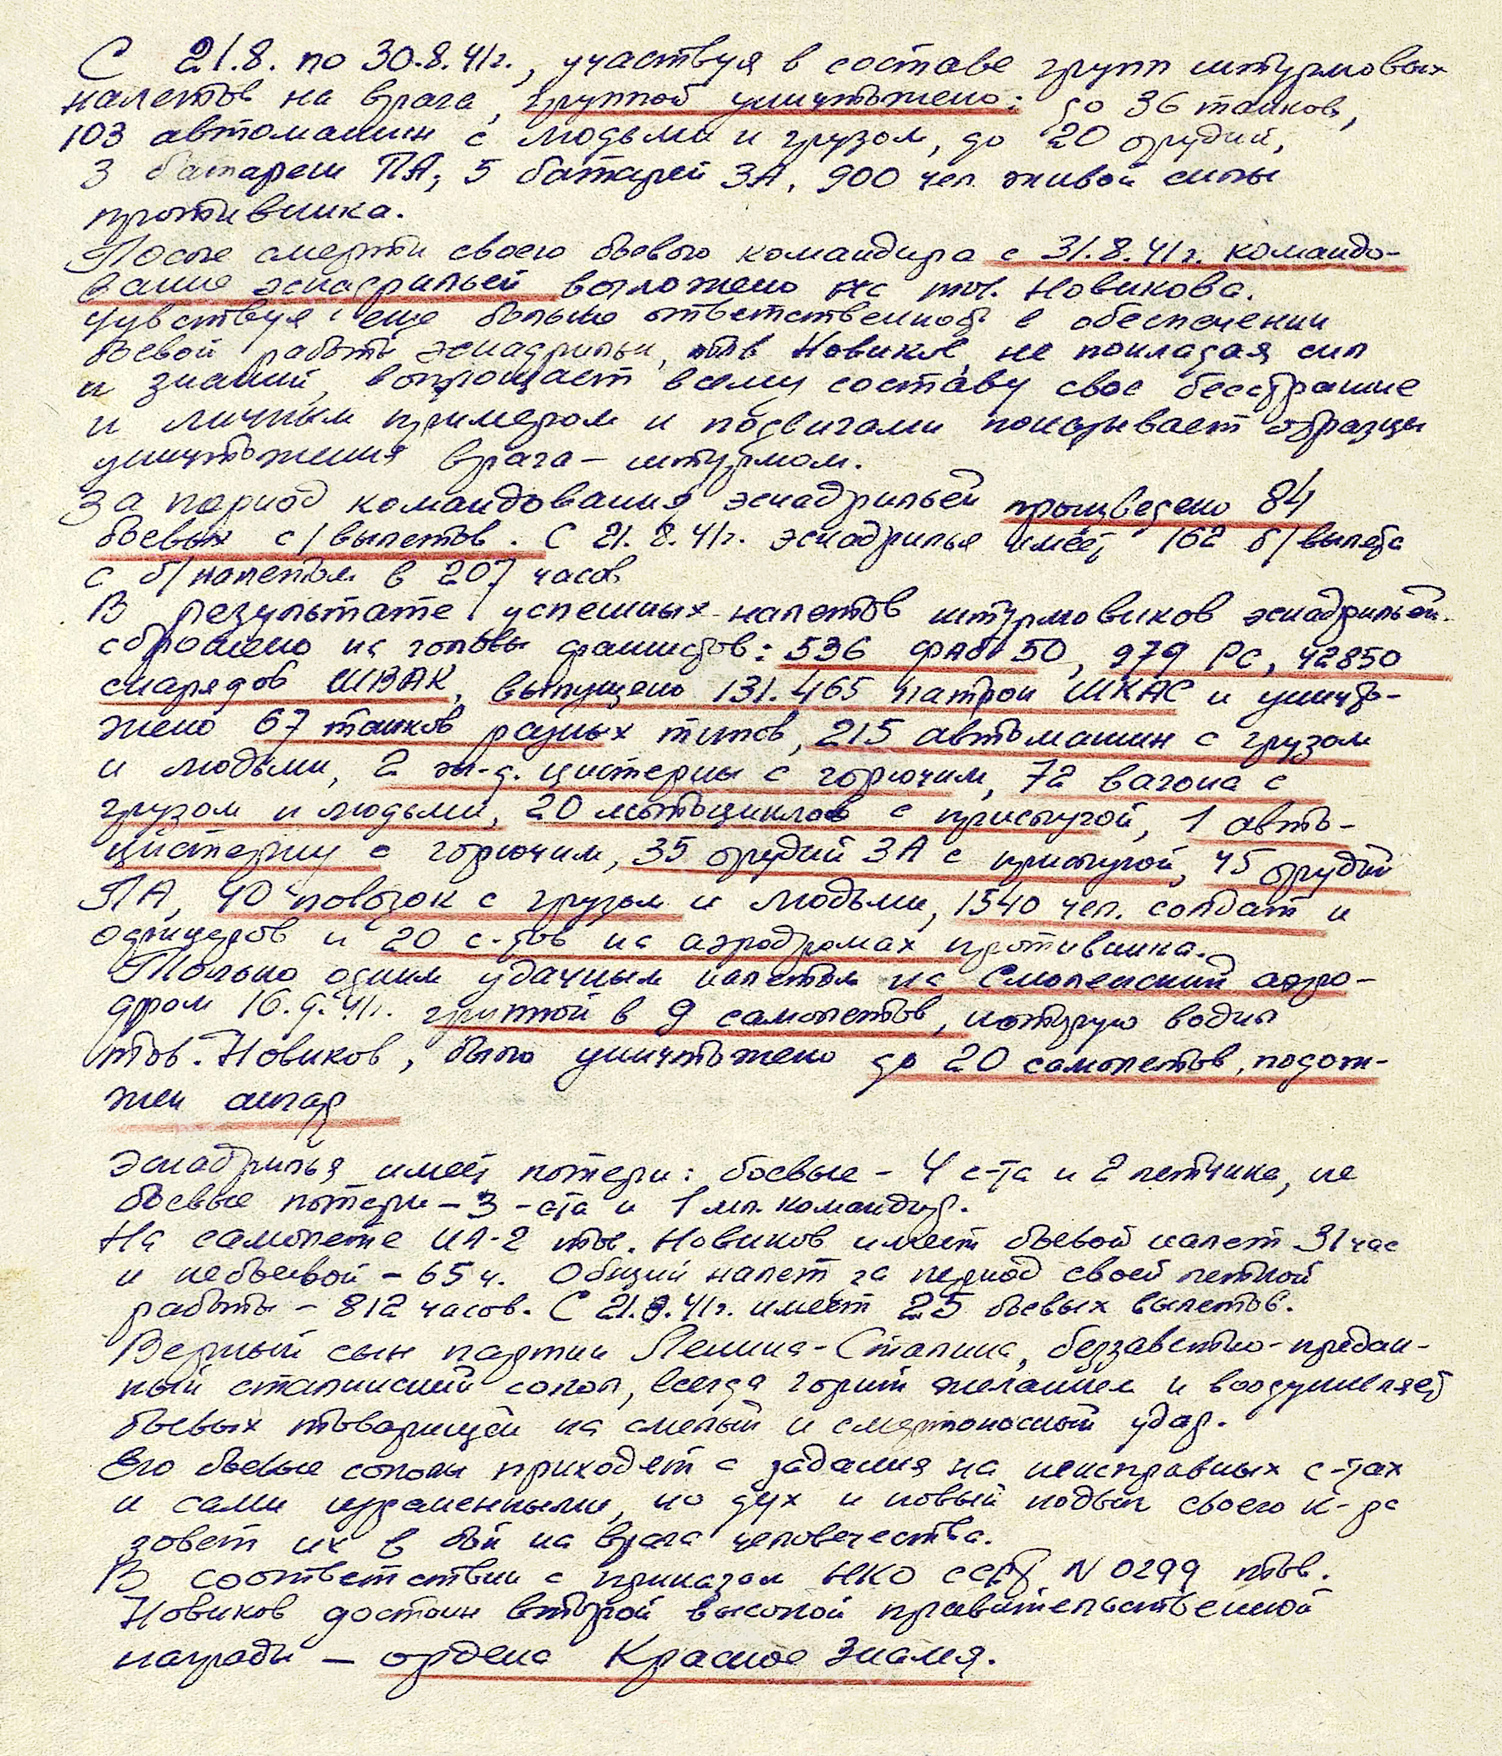 С 21.8. по 30.8.41г., участвуя в составе групп штурмовых
налетов на врага, группой уничтожено: до 36 танков,
103 автомашин с людьми и грузом, до 20 орудий,
3 батареи ПА, 5 батарей ЗА, 900 чел. живой силы
противника.
После смерти своего боевого командира с 31.8.41г. командо-
вание эскадрильей возложено на тов. Новикова.
Чувствуя еще больше ответственность в обеспечении
боевой работы эскадрильи, тов Новиков, не покладая сил
и знаний, воплощает всему составу свое бесстрашие
и личным примером и подвигами показывает образцы
уничтожения врага – штурмом.
За период командования эскадрильей произведено 84
боевых с/вылетов. С 21.8.41г. эскадрилья имеет 162 б/вылета
с б/налетом в 207 часов
В результате успешных налетов штурмовиков эскадрильей
сброшено на головы фашистов: 536 ФАБ 50, 979 РС, 42850
снарядов ШВАК, выпущено 131.465 патрон ШКАС и уничто-
жено 67 танков разных типов, 215 автомашин с грузом
и людьми, 2 ж.-д. цистерны с горючим, 72 вагона с
грузом и людьми, 20 мотоциклов с прислугой, 1 авто-
цистерну с горючим, 35 орудий ЗА с прислугой, 45 орудий
ПА, 40 повозок с грузом и людьми, 1540 чел. солдат и
офицеров и 20 с-тов на аэродромах противника.
Только одним удачным налетом на Смоленский аэро-
дром 16.9.41г. группой в 9 самолетов, которую водил
тов. Новиков, было уничтожено до 20 самолетов, подож-
жен ангар
Эскадрилья имеет потери: боевые – 4 с-та и 2 летчика, не
боевые потери – 3 -ста и 1 мл. командир.
На самолете ИЛ-2 тов. Новиков имеет боевой налет 31 час
и небоевой – 65 ч. Общий налет за период своей летной
работы – 812 часов. С 21.8.41г. имеет 25 боевых вылетов.
Верный сын партии Ленина-Сталина, беззаветно-предан-
ный сталинский сокол, всегда горит желанием и воодушевляет
боевых товарищей на смелый и смертоносный удар.
Его боевые соколы приходят с задания на неисправных с-тах
и сами израненными, но дух и новый подвиг своего к-ра
зовет их в бой на врага человечества.
В соответствии с приказом НКО СССР N 0299 тов.
Новиков достоин второй высокой правительственной
награды – ордена Красное Знамя.